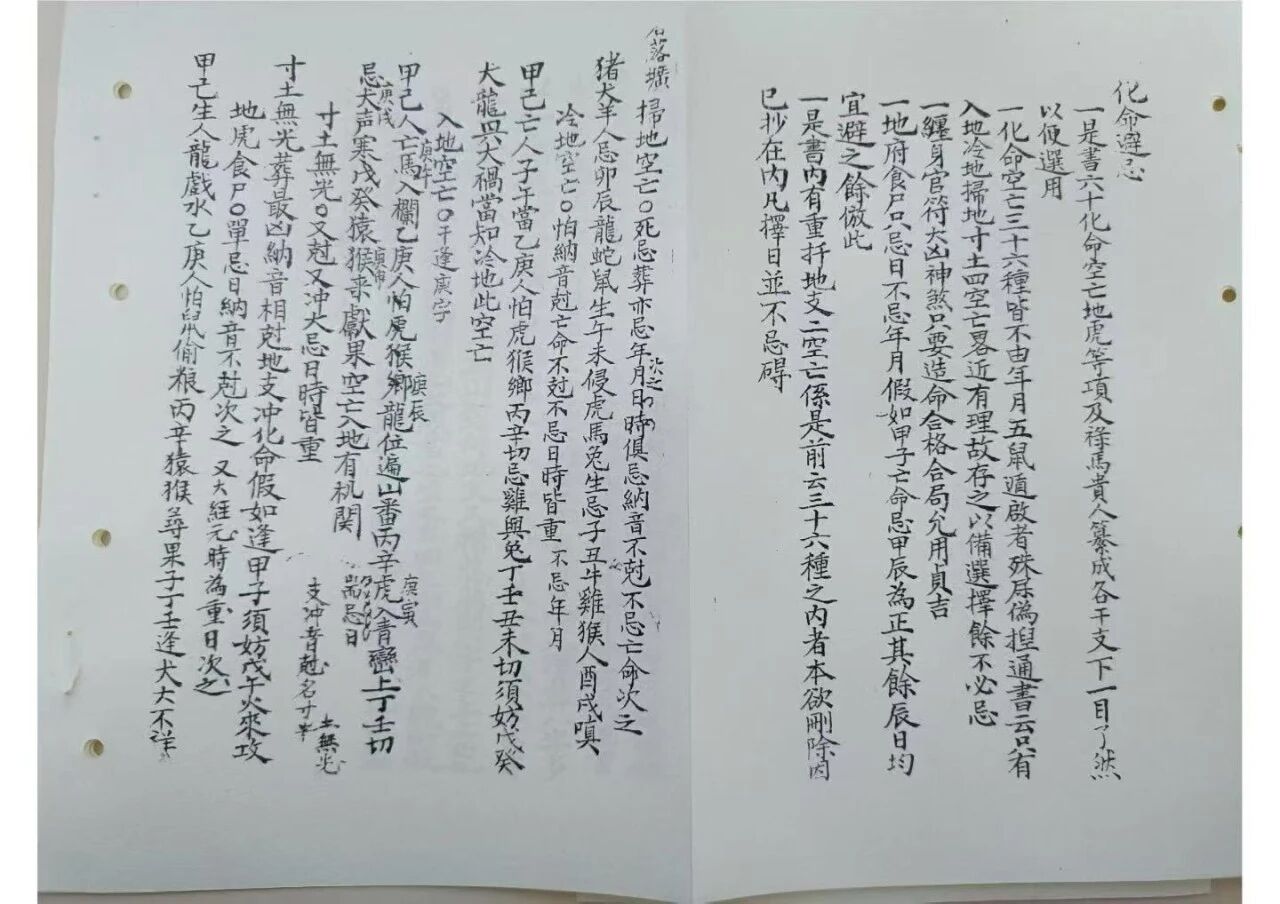 化命避忌
一是書六十化命空亡地虎等項及祿馬貴人纂成各干支下一目了然
以便選用
一化命空亡三十六種皆不由年月五鼠遁啟者殊屬偽揑通書云只有
入地冷地掃地寸土四空亡畧近有理故存之以備選擇餘不必忌
一纏身官符大凶神煞只要造命合格合局允用貞吉
一地府食尸只忌日不忌年月假如甲子亡命忌甲辰為正其餘辰日均
宜避之餘倣此
一是書內有重扦地支二空亡係是前云三十六種之內者本欲刪除因
已抄在內凡擇日並不忌碍
名落壙
掃地空亡〇死忌葬亦忌年月日時俱忌納音不尅不忌亡命次之
次之
猪犬羊人忌卯辰龍蛇鼠生午未侵虎馬兔生忌子丑牛雞猴人酉戌嗔
冷地空亡〇怕納音尅亡命不尅不忌日時皆重不忌年月
甲己亡人子午當乙庚人怕虎猴鄉丙辛切忌雞與兔丁壬丑未切須妨戊癸
犬龍與大禍當知冷地此空亡
入地空亡〇干逢庚字
庚午
庚辰
庚寅
甲己人亡馬入欄乙庚人怕虎猴鄉龍位遍山番丙辛虎入青巒上丁壬切
庚戌
庚申
忌犬声寒戊癸猿猴来獻果空亡入地有机関
寸土無光〇又尅又冲大忌日時皆重
忌日
支沖音尅名寸
土無光
寸土無光葬最凶納音相尅地支冲化命假如逢甲子須妨戊午火來攻
地虎食尸〇單忌日納音不尅次之 又大
元時為重日次之
甲己生人龍戲水乙庚人怕鼠偷粮丙辛猿猴尋果子丁壬逢犬大不祥